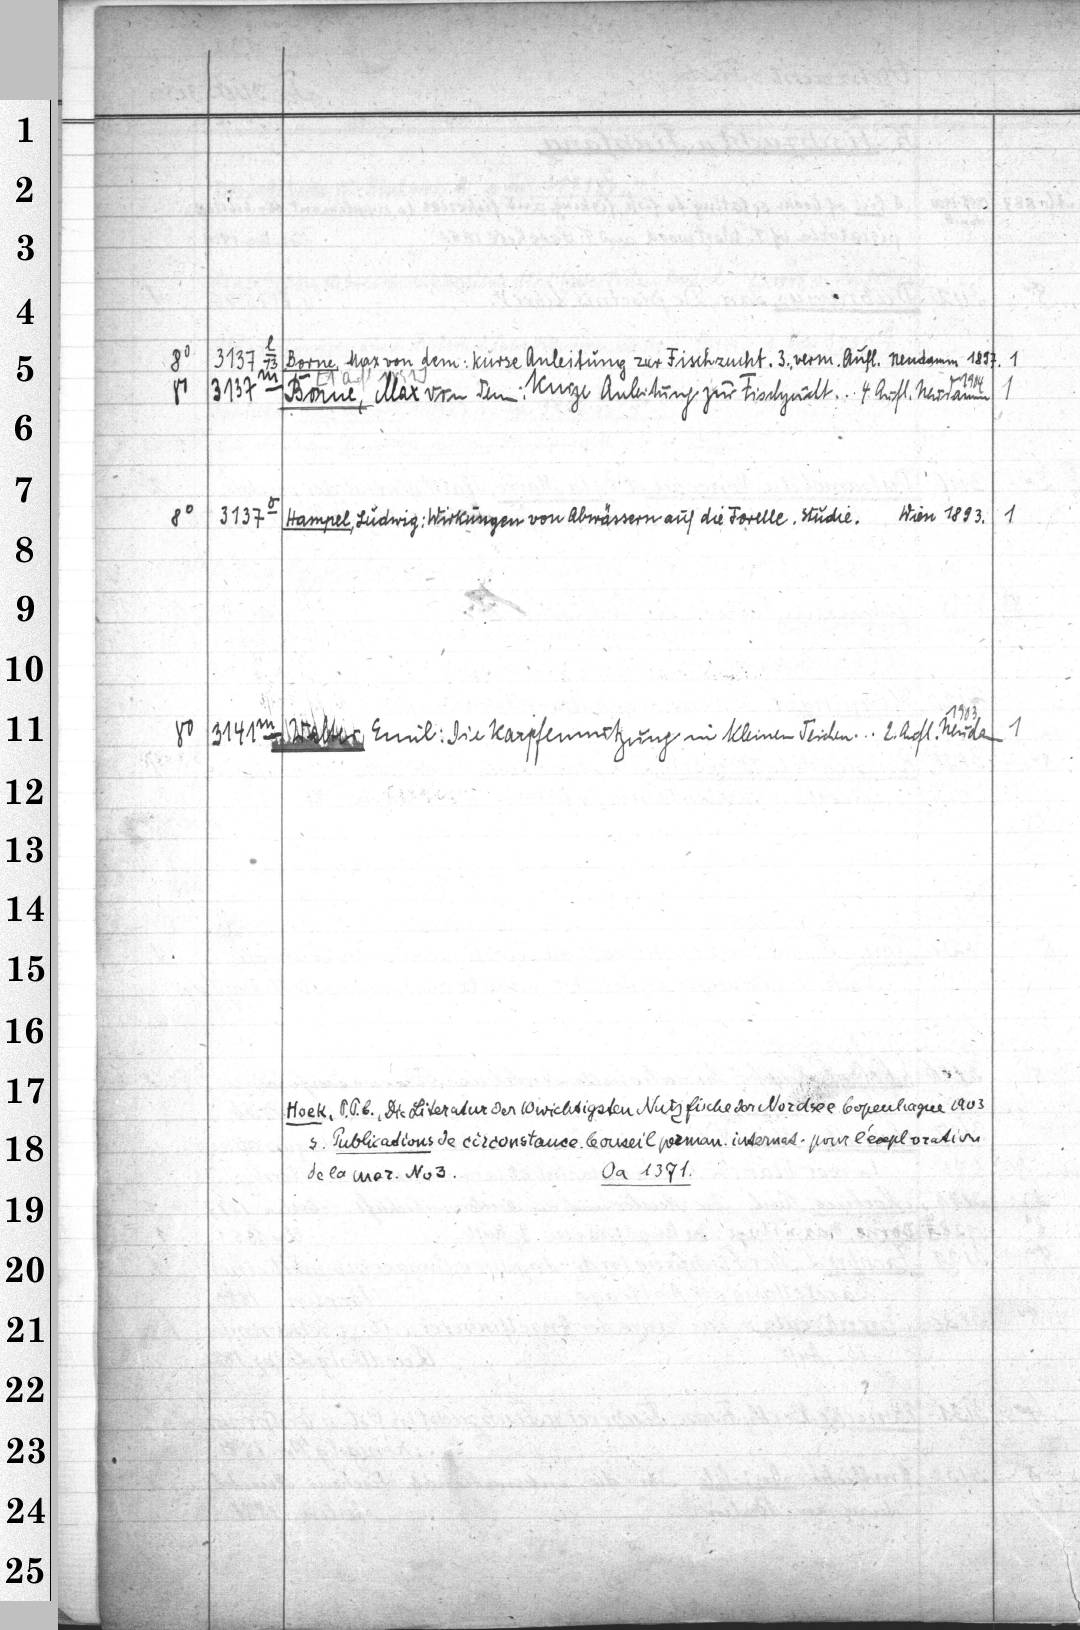 1
2
3
4
8° 3137 l/73 Borne, Max von dem: Kurze Anleitung zur Fischzucht. 3., verm. Aufl. Neudamm 1897. 1
5
8° 3137 m Borne, Max von dem: Kurze Anleitung zur Fischzucht... 4 Aufl. Neudamm 1904 1
6
7
8° 3137 Hampel, Ludwig: Wirkungen von Abwässern auf die Forelle. Studie. Wien 1893. 1
8
9
10
11 8° 3141 m Walter, Emil: Die Karpfennutzung in kleinen Teichen... 2. Aufl. Neuda 1903 1
12
13
14
15
16
17
Hoek, P.P.C., Die Literatur der 10 wichtigsten Nutzfische der Nordsee Copenhague 1903
18 s. Publications de circonstance. Conseil perman. internat. pour l'exploration
de la mer. No 3. Oa 1371.
19
20
21
22
23
24
25